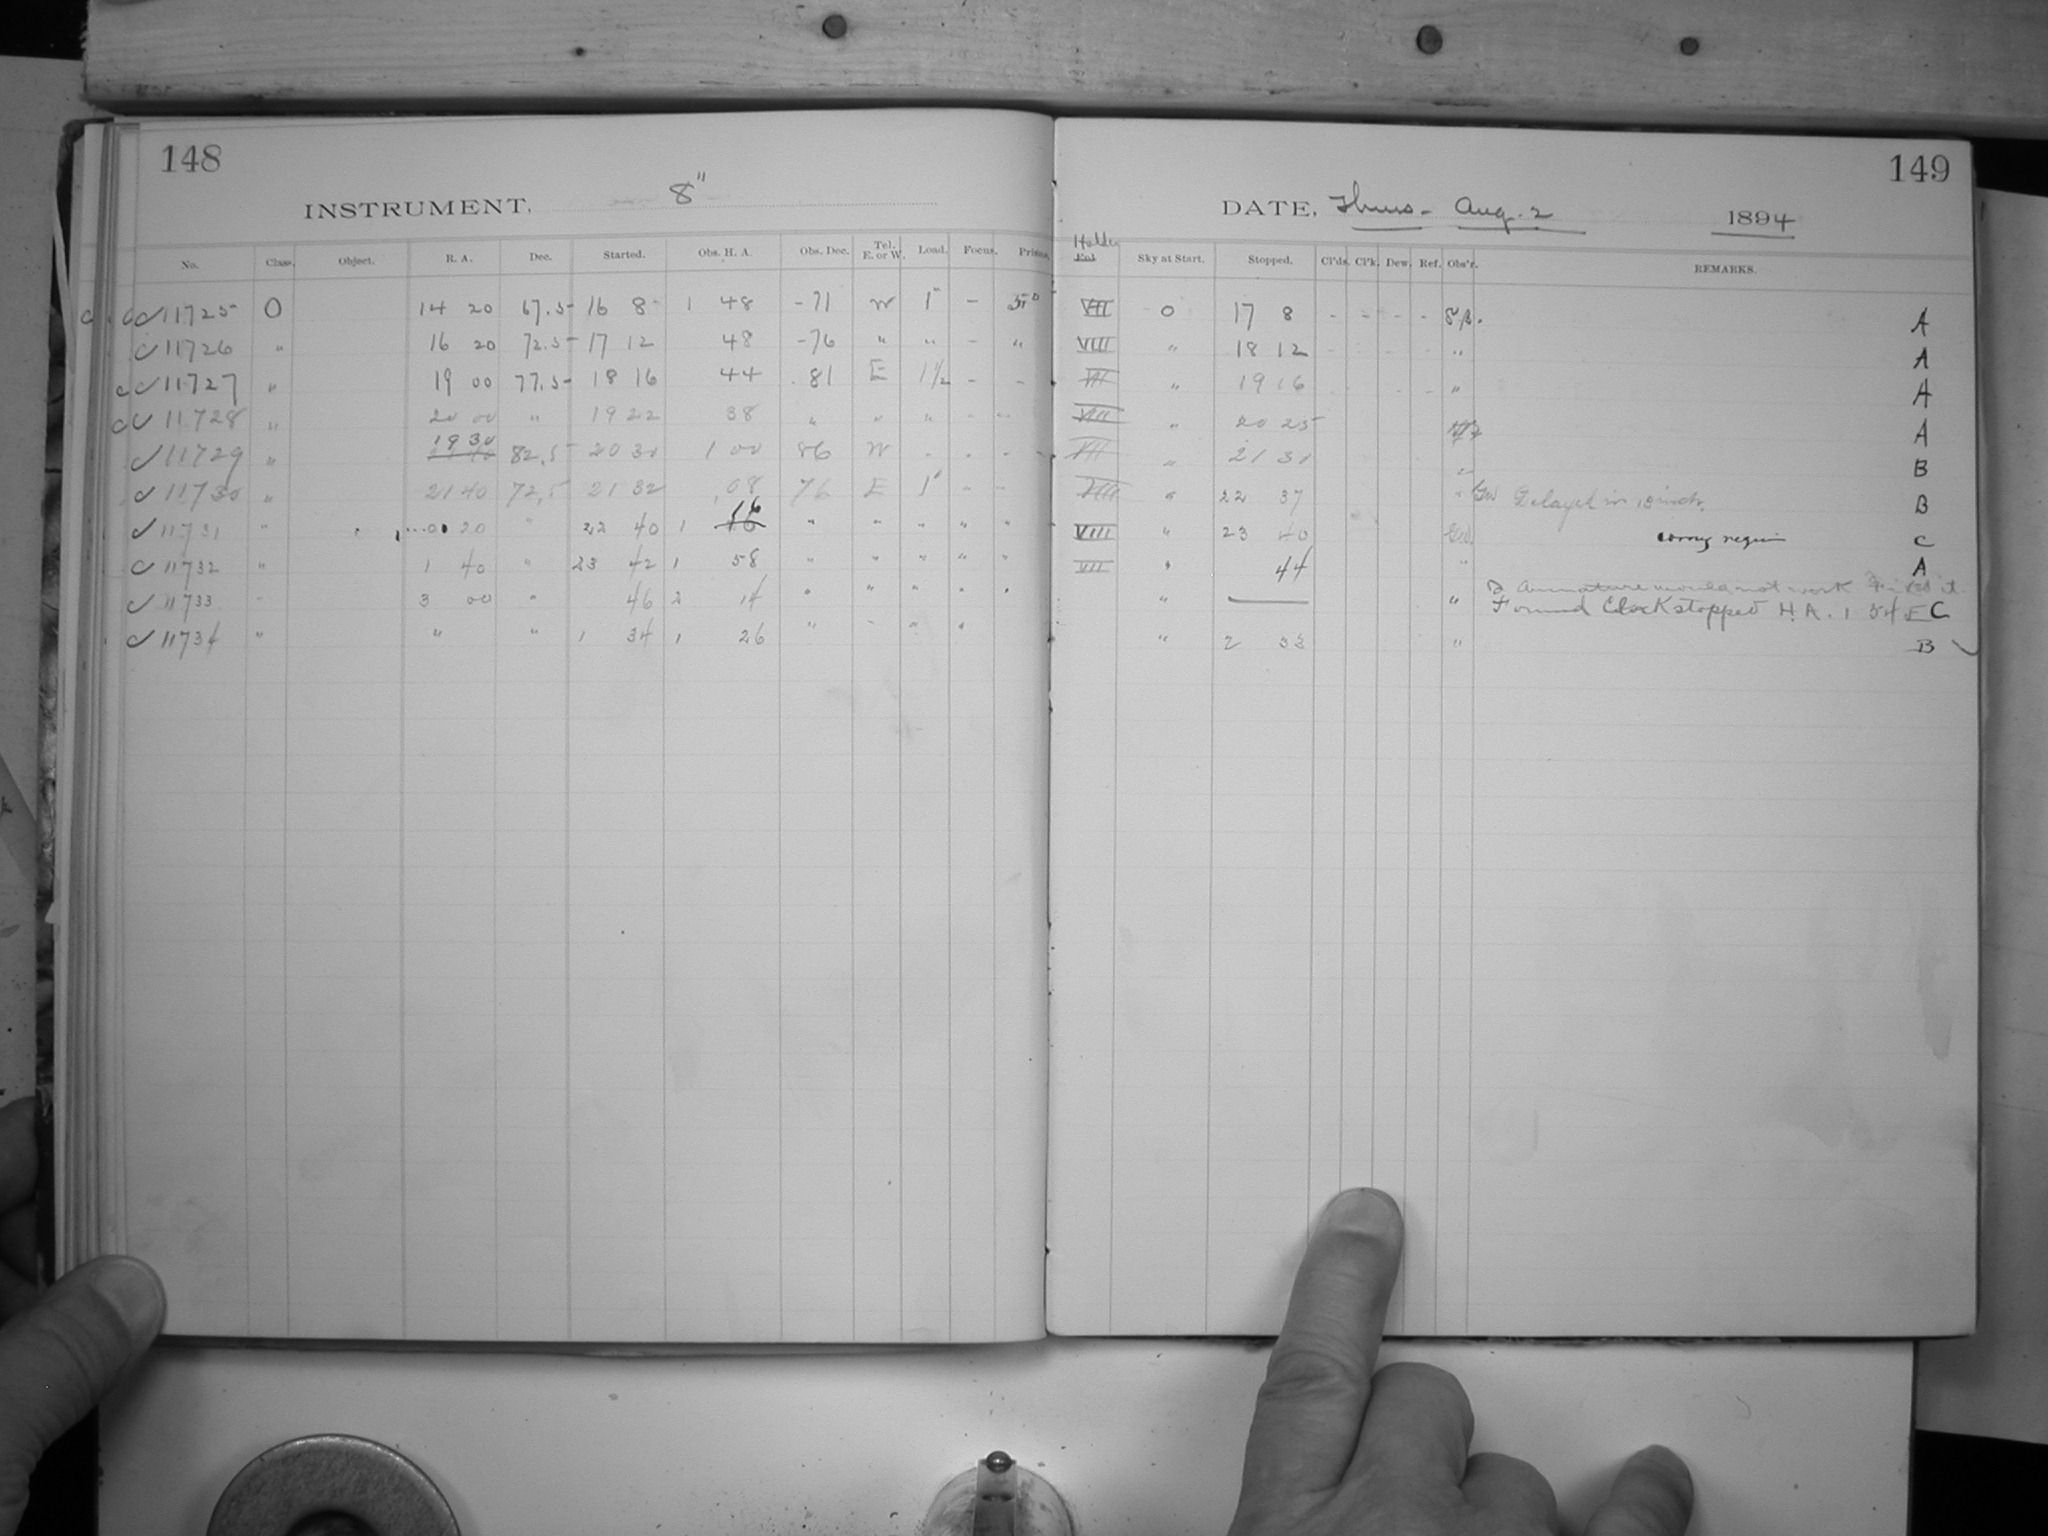 148
INSTRUMENT, 8"
No. Class. Object. R. A. Dec. Started. Obs. H. A. Obs. Dec. Tel. E. or W. Load. Focus. Prisms.
11725 O 14 20 67.5 16 8 1 48 -71 W 1" -
11726 " 16 20 72.5 17 12 48 -76 " " - "
11727 " 19 00 77.5 18 16 44 81 E 1 1/2 - -
11728 " 20 00 " 19 22 38 " " " - -
11729 " 19 30 82.5 20 31 1 00 86 W - - -
11730 " 21 40 72.5 21 32 .08 76 E 1" - -
11731 " 0 20 " 22 40 1 16 " " " " "
11732 " 1 40 " 23 42 1 58 " " " " "
11733 " 3 00 " 46 2 14 " " " " "
11734 " " " 1 34 1 26 " - " "
149
DATE, Thurs. Aug. 2 1894
Holder Sky at Start. Stopped. Cl'ds. Cl'k. Dew. Ref. Obs'r. REMARKS.
VII O 17 8 - - - - A
VIII " 18 12 " A
VII " 19 16 " A
VIII " 20 25 A
VII " 21 31 " B
VIII " 22 37 " Delayed in 13 inch. B
VIII " 23 40 wrong region C
VII " 44 " A
Armature would not work
" — " Found Clock stopped H.A. 1 54 E C
" 2 33 " B